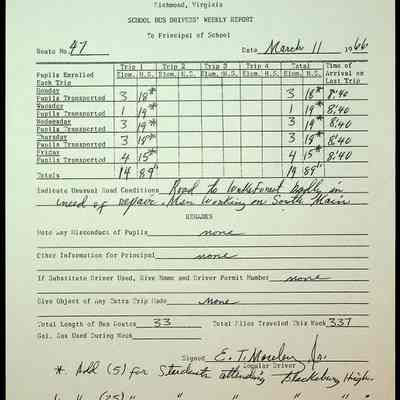 Richmond, Virginia
SCHOOL BUS DRIVERS' WEEKLY REPORT
To Principal of School
Route No. 47 Date March 11 1966
Trip 1 Trip 2 Trip 3 Trip 4 Total Time of
Pupils Enrolled Elem. H.S. Elem. H.S. Arrival on
Each Trip Last Trip
Monday
Pupils Transported 3 18* 3 18* 8:40
Tuesday
Pupils Transported 1 19* 1 19* 8:40
Wednesday
Pupils Transported 3 19* 3 19* 8:40
Thursday
Pupils Transported 3 19* 3 19* 8:40
Friday
Pupils Transported 4 15* 4 15* 8:40
Totals 14 89" 14 89"
Indicate Unusual Road Conditions Road to badly in
need of repair. Men working on South Main
REMARKS
Note Any Misconduct of Pupils none
Other Information for Principal none
If Substitute Driver Used, Give Name and Driver Permit Number none
Give Object of Any Extra Trip Made None
Total Length of Bus Routes 33 Total Miles Traveled This Week 337
Gal. Gas Used During Week
Signed E. T.
Regular Driver
*. Add (5) for Students attending Blacksburg High.
(25) " " " "